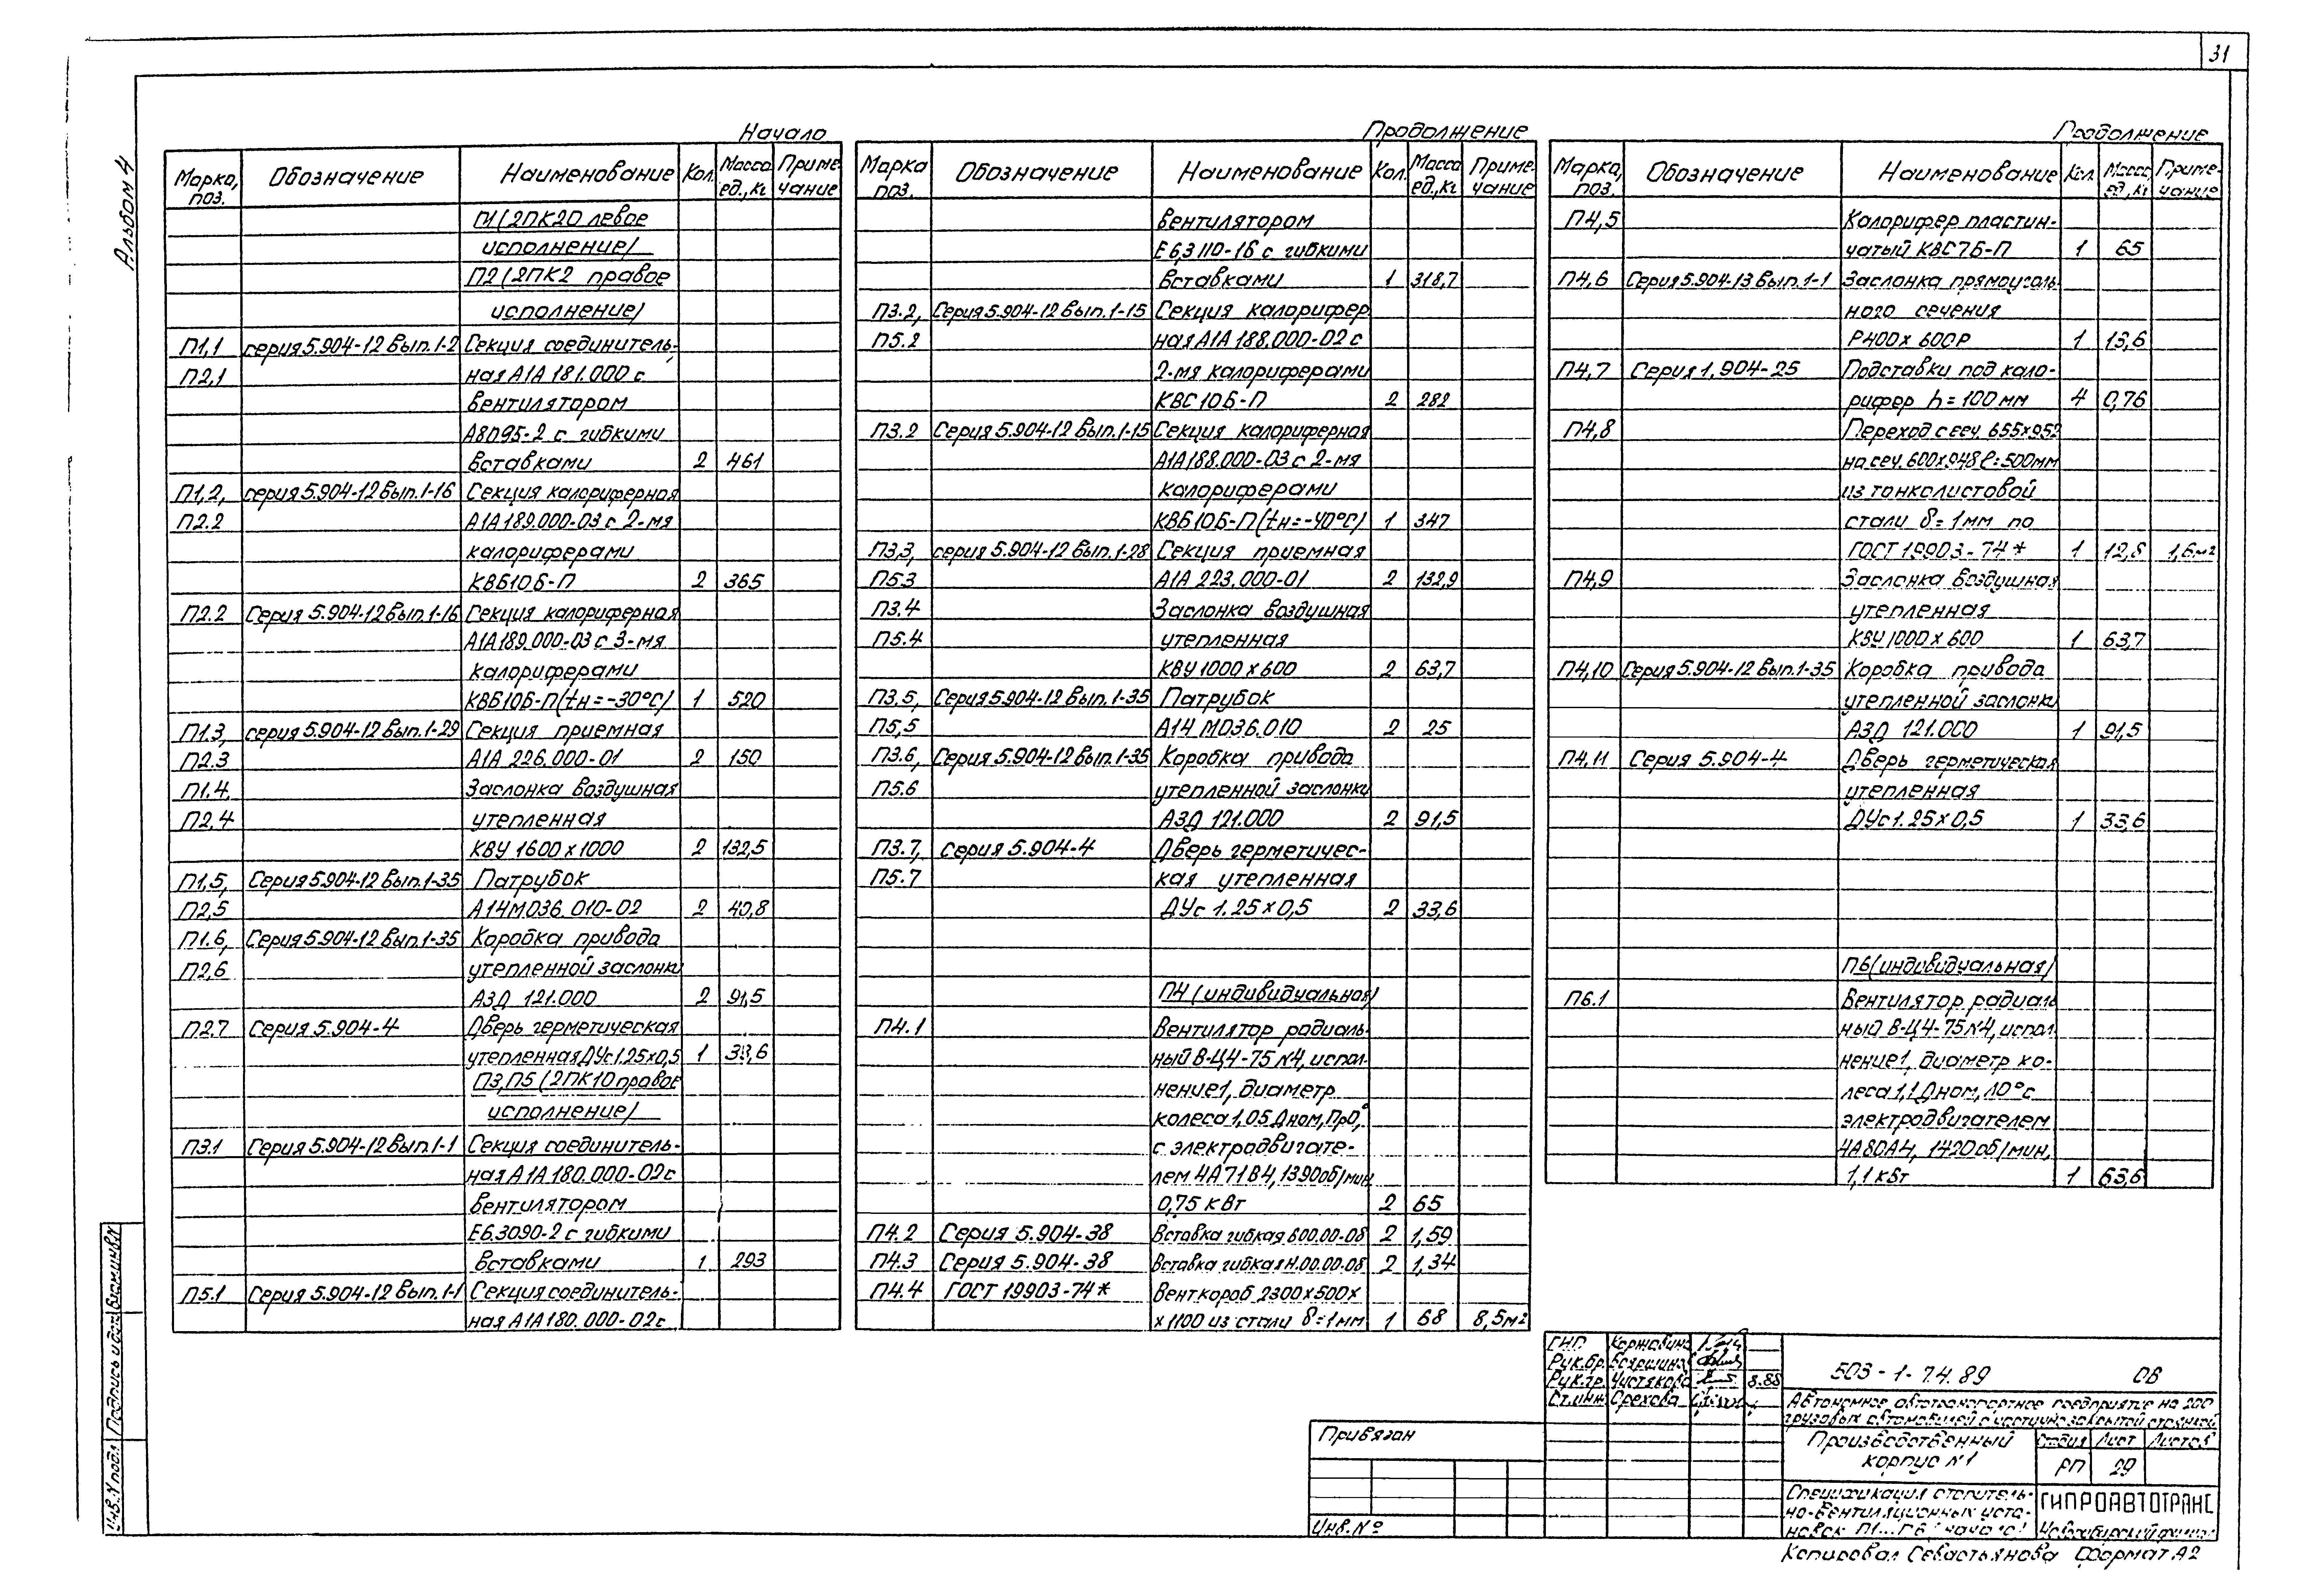 31
Альбом 4
Начало
Марка, поз. Обозначение Наименование Кол. Масса ед., кг Приме-чание
П1 (2ПК20 левое
исполнение)
П2 (2ПК2 правое
исполнение)
П1,1 серия 5.904-12 вып.1-2 Секция соединитель-
П2,1 ная А1А 181.000 с
вентилятором
А8D95-2 с гибкими
вставками 2 461
П1,2, серия 5.904-12 вып.1-16 Секция калориферная
П2.2 А1А 189.000-03 с 2-мя
калориферами
КВБ10Б-П 2 365
П2.2 Серия 5.904-12 вып.1-16 Секция калориферная
А1А 189.000-03 с 3-мя
калориферами
КВБ10Б-П (tн=-30°С) 1 520
П1.3, серия 5.904-12 вып.1-29 Секция приемная
П2.3 А1А 226.000-01 2 150
П1.4, Заслонка воздушная
П2,4 утепленная
КВУ 1600х1000 2 132,5
П1,5, Серия 5.904-12 вып.1-35 Патрубок
П2,5 А14М036.010-02 2 40,8
П1.6, Серия 5.904-12 вып.1-35 Коробка привода
П2,6 утепленной заслонки
АЗД 121.000 2 91,5
П2,7 Серия 5.904-4 Дверь герметическая
утепленная ДУс1.25х0,5 1 33,6
П3, П5 (2ПК10 правое
исполнение)
П3.1 Серия 5.904-12 вып.1-1 Секция соединитель-
ная А1А 180.000-02с
вентилятором
Е6.3090-2 с гибкими
вставками 1 293
П5.1 Серия 5.904-12 вып.1-1 Секция соединитель-
ная А1А 180.000-02с
Продолжение
Марка поз. Обозначение Наименование Кол. Масса ед., кг Приме-чание
вентилятором
Е6,3 110-16 с гибкими
вставками 1 318,7
П3.2, Серия 5.904-12 вып.1-15 Секция калорифер
П5.2 ная А1А 188.000-02 с
2-мя калориферами
КВС10Б-П 2 282
П3.2 Серия 5.904-12 вып.1-15 Секция калориферная
А1А 188.000-03 с 2-мя
калориферами
КВБ10Б-П (tн=-40°С) 1 347
П3,3, серия 5.904-12 вып.1-28 Секция приемная
П5.3 А1А 223.000-01 2 132,9
П3.4 Заслонка воздушная
П5.4 утепленная
КВУ 1000х600 2 63,7
П3,5, Серия 5.904-12 вып.1-35 Патрубок
П5,5 А14 М036.010 2 25
П3.6, Серия 5.904-12 вып.1-35 Коробка привода
П5.6 утепленной заслонки
АЗД 121.000 2 91,5
П3.7, Серия 5.904-4 Дверь герметичес-
П5.7 кая утепленная
ДУс 1.25х0,5 2 33,6
П4 (индивидуальная)
П4.1 Вентилятор радиаль-
ный В-Ц4-75 N4, испол-
нение1, диаметр
колеса 1,05 Дном, Пр0°,
с электродвигате-
лем 4А71В4, 1390об/мин
0,75 кВт 2 65
П4.2 Серия 5.904-38 Вставка гибкая 600.00-08 2 1,59
П4.3 Серия 5.904-38 Вставка гибкая Н.00.00-08 2 1,34
П4.4 ГОСТ 19903-74* Венткороб 2300х500х
х1100 из стали δ=1мм 1 68 8,5м²
Продолжение
Марка, поз. Обозначение Наименование Кол. Масса ед., кг Приме-чание
П4,5 Калорифер пластин-
чатый КВС7Б-П 1 65
П4,6 Серия 5.904-13 вып.1-1 Заслонка прямоуголь-
ного сечения
Р400х600Р 1 13,6
П4,7 Серия 1.904-25 Подставки под кало-
рифер h=100мм 4 0,76
П4,8 Переход с сеч. 655х952
на сеч. 600х948 ℓ=500мм
из тонколистовой
стали δ=1мм по
ГОСТ 19903-74* 1 12,8 1,6м²
П4,9 Заслонка воздушная
утепленная
КВУ 1000х600 1 63,7
П4,10 Серия 5.904-12 вып.1-35 Коробка привода
утепленной заслонки
АЗД 121.000 1 91,5
П4,11 Серия 5.904-4 Дверь герметическая
утепленная
ДУс 1.25х0,5 1 33,6
П6 (индивидуальная)
П6.1 Вентилятор радиаль
ный В-Ц4-75 N4, испол
нение1, диаметр ко-
леса 1,1 Дном, Л0°с
электродвигателем
4А80А4, 1420об/мин,
1,1 кВт 1 63,6
ГИП Коржавина
Рук.бр. Бояршина
Рук.гр. Чистякова 8.88
Ст.инж Орехова
503-1-74.89 ОВ
Автономное автотранспортное предприятие на 200
грузовых автомобилей с частично закрытой стоянкой
Производственный корпус N1
Стадия Лист Листов
РП 29
Спецификация отопитель-
но-вентиляционных уста-
новок П1...П6 (начало)
ГИПРОАВТОТРАНС
Новосибирский филиал
Привязан
Инв.№
Инв.N подл. Подпись и дата Взам.инв.N
Копировал Севастьянова Формат А2